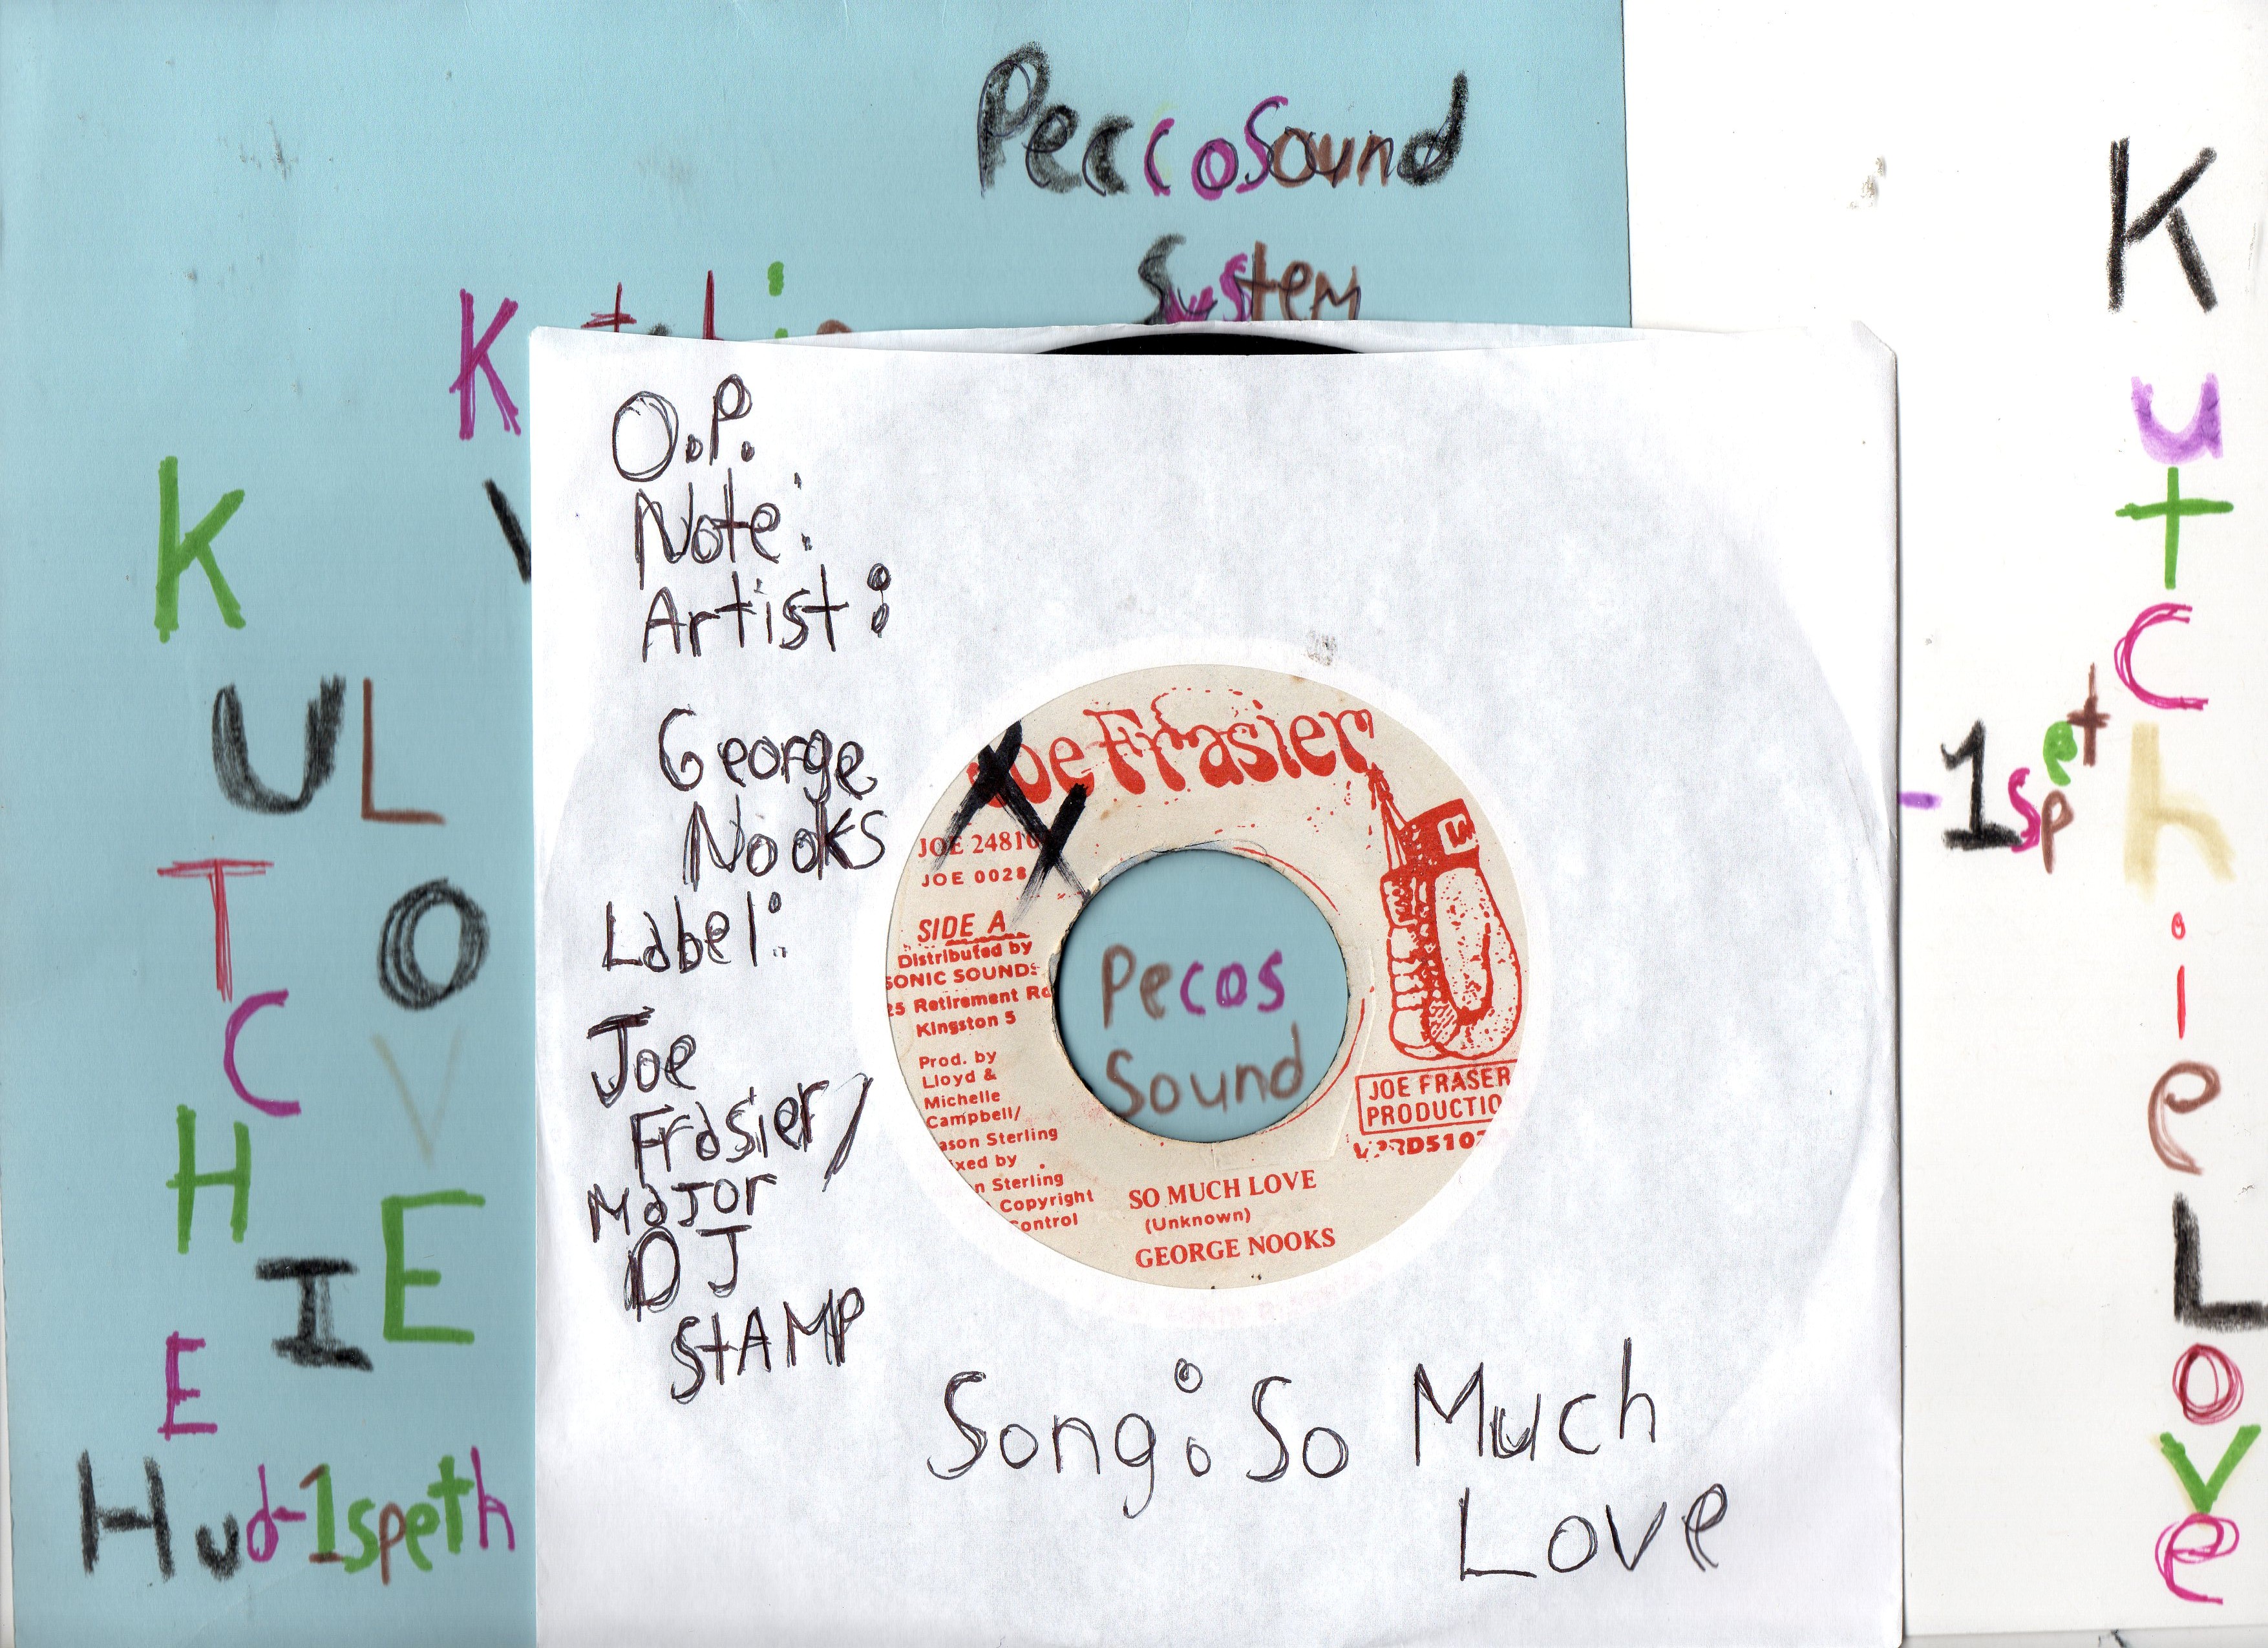 PeccoSound
System
K
KUTCHIE
LOVE
Hud-1speth
O.P.
Note:
Artist:
George
Nooks
Label:
Joe
Frasier/
Major
DJ
STAMP
Joe Frasier
JOE 24810
JOE 0028
SIDE A
Distributed by
SONIC SOUNDS
25 Retirement Rd
Kingston 5
Prod. by
Lloyd &
Michelle
Campbell/
ason Sterling
xed by
n Sterling
Copyright
Control
Pecos
Sound
JOE FRASER
PRODUCTIO
SO MUCH LOVE
(Unknown)
GEORGE NOOKS
Song: So Much
Love
-1spet
KutchieLove